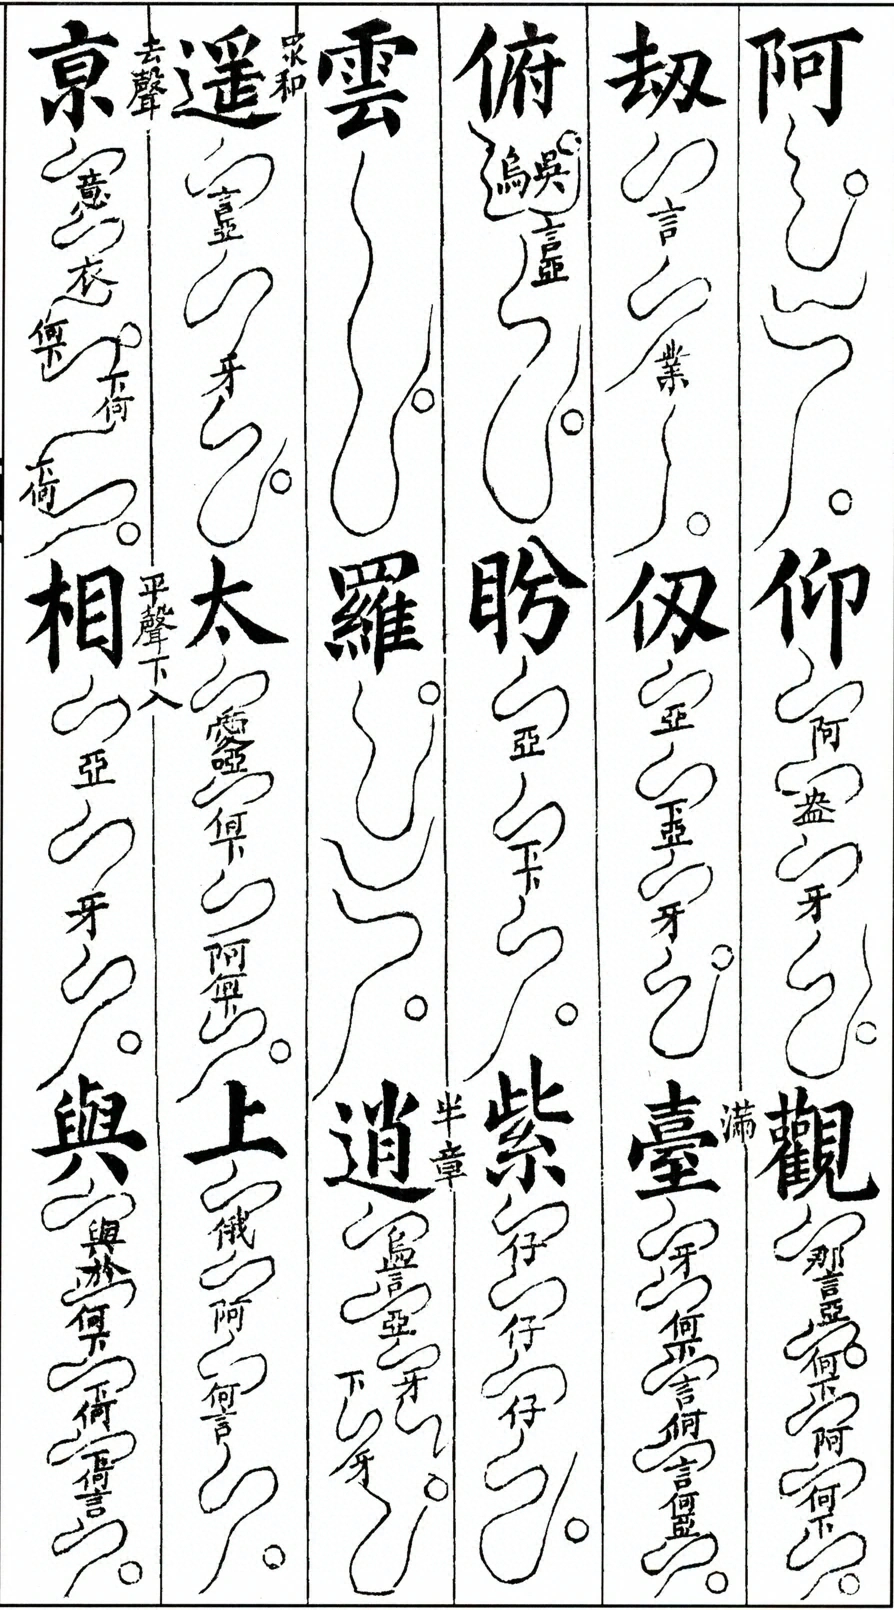 阿 仰 阿 盎 牙 觀 那 言 亞 何 下 阿 何 下
劫 言 業 仭 亞 下 亞 牙 臺 滿 牙 何 下 言 何 言 何 亞
俯 吳 烏 言 亞 盻 亞 下 下 紫 仔 仔 仔
雲 羅 逍 半章 烏 言 亞 牙 下 牙
遥 眾和 言 亞 牙 太 何 下 阿 何 下 上 俄 阿 何 言
亰 去聲 意 衣 何 下 下 何 下 何 相 平聲下入 亞 牙 與 與 於 何 下 下 何 下 何 言